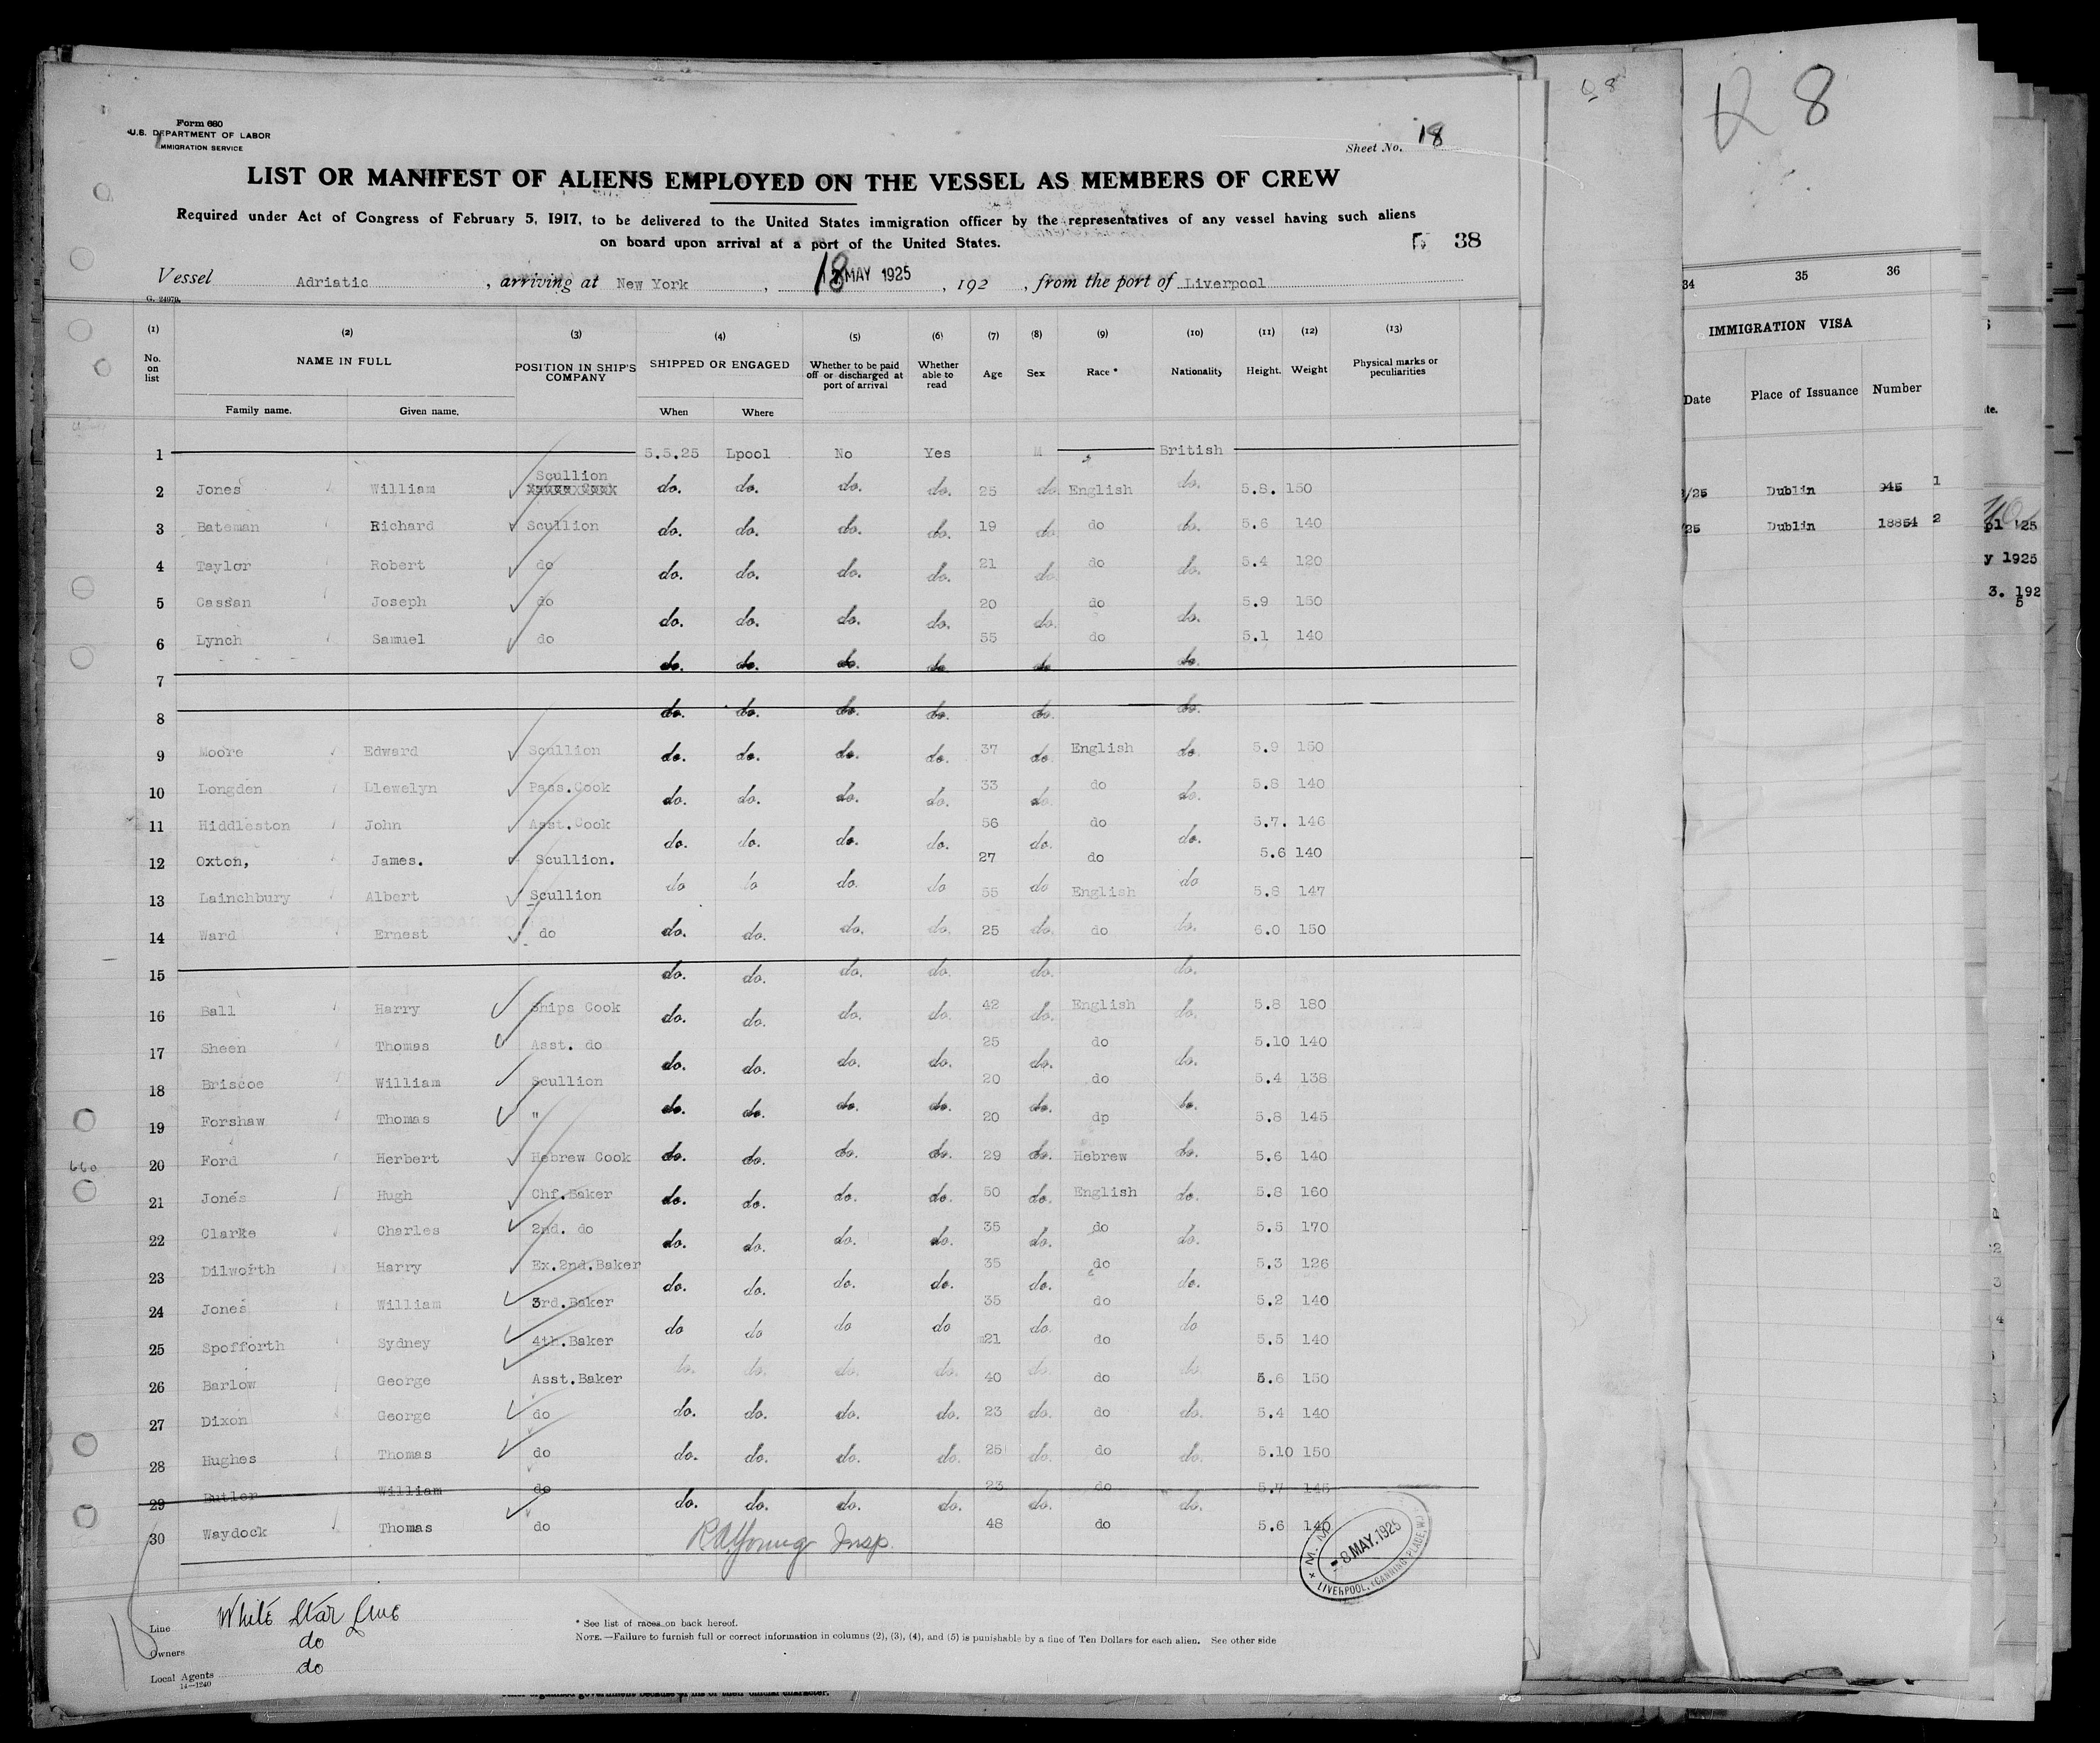 Form 680
U.S. DEPARTMENT OF LABOR
IMMIGRATION SERVICE
Sheet No. 18
LIST OR MANIFEST OF ALIENS EMPLOYED ON THE VESSEL AS MEMBERS OF CREW
Required under Act of Congress of February 5, 1917, to be delivered to the United States immigration officer by the representatives of any vessel having such aliens
on board upon arrival at a port of the United States.
38
Vessel Adriatic , arriving at New York , 18 MAY 1925 , 192 , from the port of Liverpool
(1) (2) (3) (4) (5) (6) (7) (8) (9) (10) (11) (12) (13)
No. on list NAME IN FULL POSITION IN SHIP'S COMPANY SHIPPED OR ENGAGED Whether to be paid off or discharged at port of arrival Whether able to read Age Sex Race * Nationality Height. Weight Physical marks or peculiarities
Family name. Given name. When Where
1 5.5.25 Lpool No Yes M British
Scullion
2 Jones William do. do. do. do. 25 do. English do. 5.8. 150
3 Bateman Richard Scullion do. do. do. do. 19 do. do do. 5.6 140
4 Taylor Robert do do. do. do. do. 21 do. do do. 5.4 120
5 Cassan Joseph do do. do. do. do. 20 do. do do. 5.9 150
6 Lynch Samuel do do. do. do. do 55 do do do. 5.1 140
7
8 do. do. do. do. do. do.
9 Moore Edward Scullion do. do. do. do. 37 do. English do. 5.9 150
10 Longden Llewelyn Pass.Cook do. do. do. do. 33 do. do do. 5.8 140
11 Hiddleston John Asst.Cook do. do. do. do. 56 do. do do. 5.7. 146
12 Oxton, James. Scullion. do do do. do 27 do do do 5.6 140
13 Lainchbury Albert Scullion 55 English 5.8 147
14 Ward Ernest do do. do. do. do. 25 do. do do. 6.0 150
15 do. do. do. do. do. do.
16 Ball Harry Ships Cook do. do. do. do. 42 do. English do. 5.8 180
17 Sheen Thomas Asst. do do. do. do. do. 25 do. do do. 5.10 140
18 Briscoe William Scullion do. do. do. do. 20 do. do do. 5.4 138
19 Forshaw Thomas " 20 dp 5.8 145
20 Ford Herbert Hebrew Cook do. do. do. do. 29 do. Hebrew do. 5.6 140
21 Jones Hugh Chf.Baker do. do. do. do. 50 do. English do. 5.8 160
22 Clarke Charles 2nd. do do. do. do. do. 35 do. do do. 5.5 170
23 Dilworth Harry Ex.2nd.Baker do. do. do. do. 35 do. do do. 5.3 126
24 Jones William 3rd.Baker do do do do 35 do. do do 5.2 140
25 Spofforth Sydney 4th.Baker do. do. do. do. 21 do. do do. 5.5 140
26 Barlow George Asst.Baker 40 do 5.6 150
27 Dixon George do do. do. do. do. 23 do. do do. 5.4 140
28 Hughes Thomas do do. do. do. do. 25 do. do do. 5.10 150
29 Butler William do do. do. do. do. 23 do. do do. 5.7 145
30 Waydock Thomas do 48 do 5.6 140
R.A.Young Insp.
M.M. 8 MAY.1925 LIVERPOOL, (CANNING PLACE, W.)
Line White Star Line
Owners do
Local Agents do
14—1240
* See list of races on back hereof.
NOTE.—Failure to furnish full or correct information in columns (2), (3), (4), and (5) is punishable by a fine of Ten Dollars for each alien. See other side
R 8
34 35 36
IMMIGRATION VISA
Date Place of Issuance Number
/25 Dublin 945 1
/25 Dublin 18854 2
25
y 1925
3. 192
5